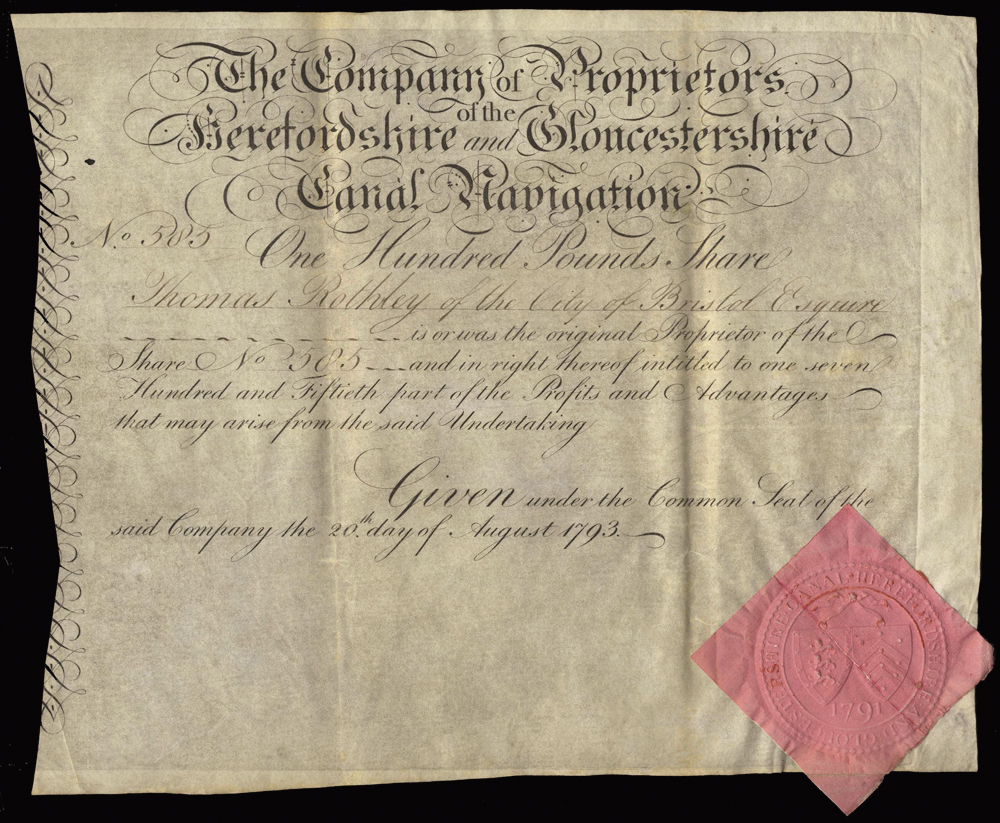 The Company of Proprietors
of the
Herefordshire and Gloucestershire
Canal Navigation
No. 585
One Hundred Pounds Share
Thomas Rothley of the City of Bristol Esquire
is or was the original Proprietor of the
Share No 585 and in right thereof intitled to one seven
Hundred and Fiftieth part of the Profits and Advantages
that may arise from the said Undertaking
Given under the Common Seal of the
said Company the 20th. day of August 1793.
CANAL HEREFORDSHIRE AND
1791